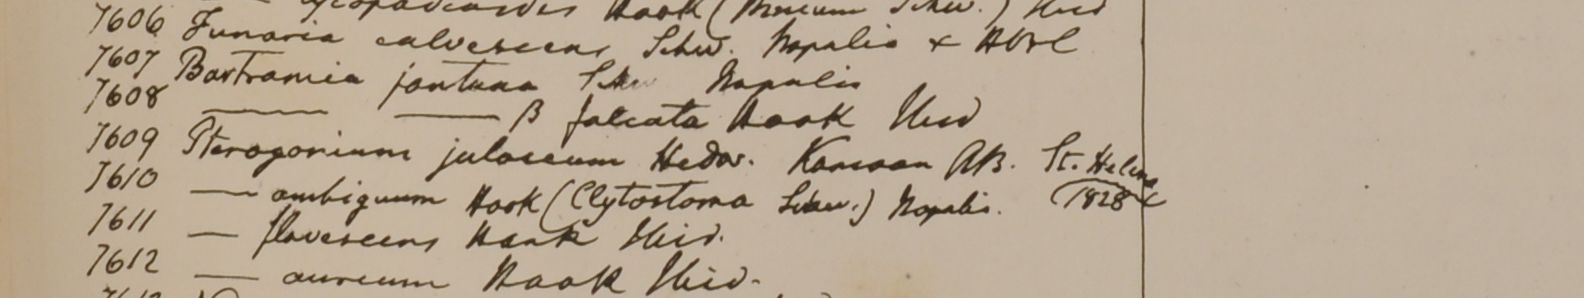 7606 Hook (Mnium Schw.) Ibid
7607 Funaria calvescens Schw. Napalia & HBC
7608 Bartramia fontana Schw Napalis
— — β falcata Hook Ibid
7609 Pterogonium julaceum Hedw. Kamaon RB. St. Helena
7610 — ambiguum Hook (Clytostoma Schw.) Napalis. (1828
7611 — flavescens Hook Ibid.
7612 — aureum Hook Ibid.